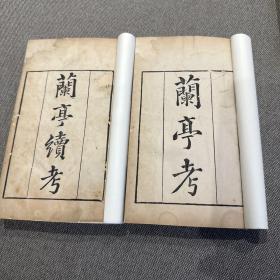 蘭亭考
蘭亭續考